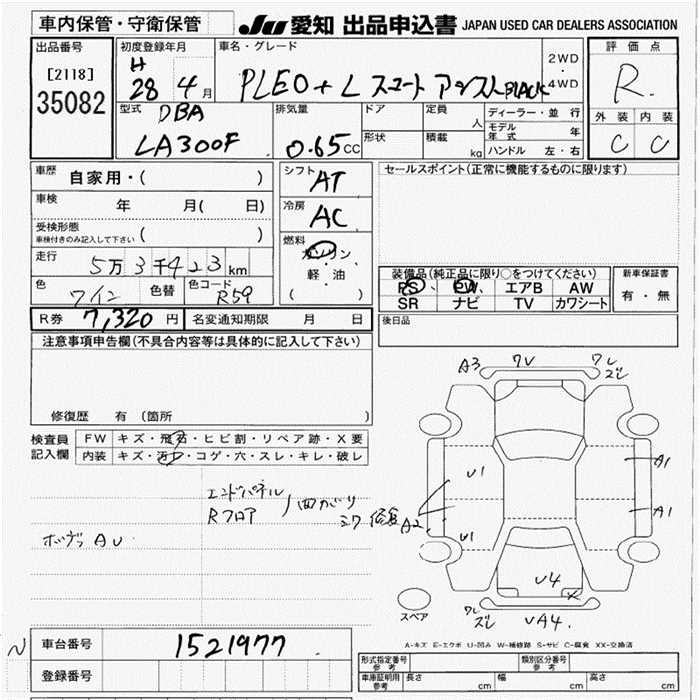 車内保管・守衛保管
JU 愛知 出品申込書 JAPAN USED CAR DEALERS ASSOCIATION
出品番号
[2118]
35082
初度登録年月
H
28 年 4 月
車名・グレード
PLEO + L スマート アシスト BLACK
2WD
・
4WD
評価点
R
外装 内装
C C
型式
DBA
LA300F
排気量
0.65 CC
ドア
形状
定員
人
積載
kg
ディーラー・並行
モデル年式 年
ハンドル 左・右
車歴
自家用・( )
車検
年 月( 日)
受検形態
車検付きのみ記入して下さい ( )
走行
5万3千423km
色
ワイン
色替
色コード
R59
シフト
AT
冷房
AC
燃料
ガソリン
・
軽・油
( )
セールスポイント(正常に機能するものに限ります)
装備品(純正品に限り○をつけてください)
PS、 PW、 エアB AW
SR ナビ TV カワシート
新車保証書
有・無
R券 7,320 円
名変通知期限 月 日
後日品
注意事項申告欄(不具合内容等は具体的に記入して下さい)
修復歴 有(箇所
検査員
記入欄
FW キズ・飛石・ヒビ割・リペア跡・X要
内装 キズ・汚れ・コゲ・穴・スレ・キレ・破レ
エンドパネル
Rフロア
凹 曲がり
ボデー AU
A3
ワU
ワレ
ズレ
U1
A1
A2
U1
A1
U4
X
ワレ
ズレ
UA4.
スペア
A-キズ E-エクボ U-凹み W-補修跡 S-サビ C-腐食 XX-交換済
N
車台番号
1521977
登録番号
形式指定番号
参考
類別区分番号
参考
車庫証明用
参考
長さ cm
幅 cm
高さ cm